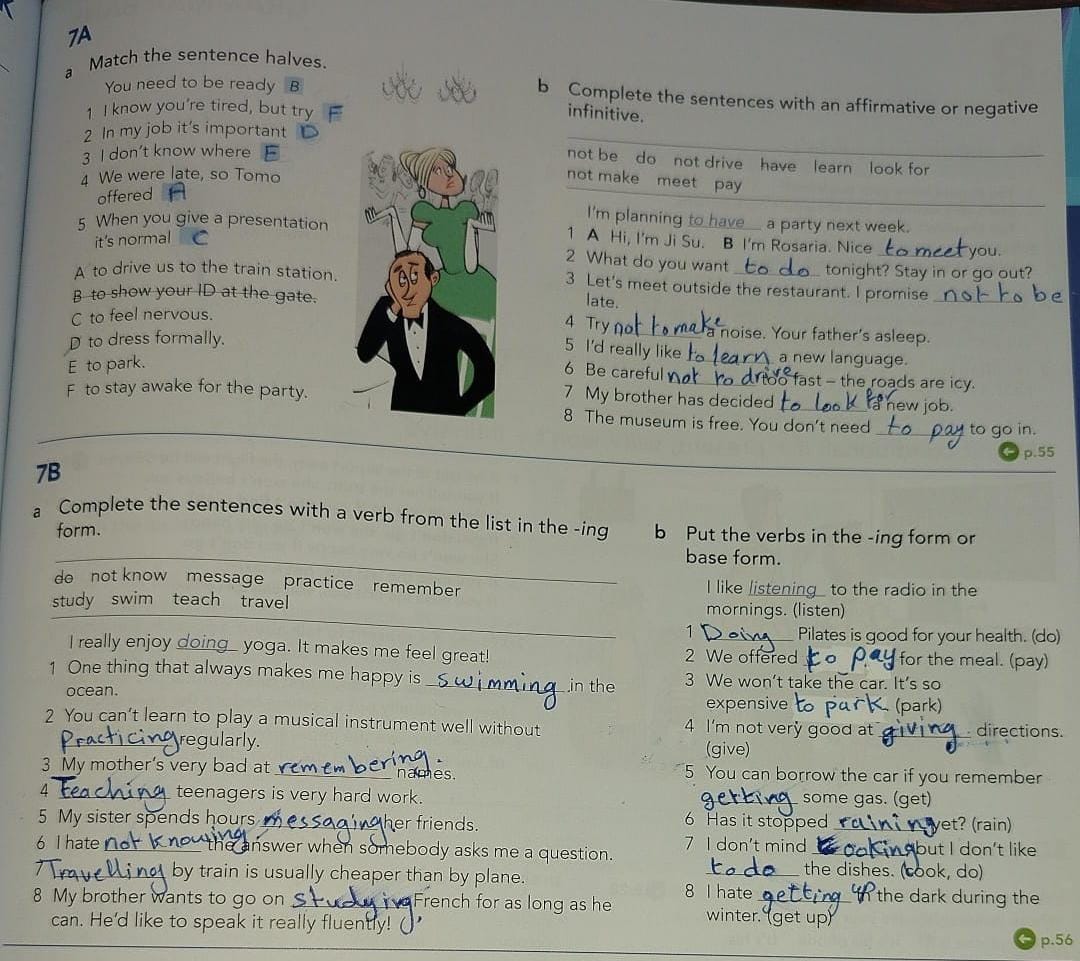 7A
a Match the sentence halves.
You need to be ready B
1 I know you're tired, but try F
2 In my job it's important D
3 I don't know where E
4 We were late, so Tomo
offered A
5 When you give a presentation
it's normal C
A to drive us to the train station.
B to show your ID at the gate.
C to feel nervous.
D to dress formally.
E to park.
F to stay awake for the party.
b Complete the sentences with an affirmative or negative
infinitive.
not be do not drive have learn look for
not make meet pay
I'm planning to have a party next week.
1 A Hi, I'm Ji Su. B I'm Rosaria. Nice to meet you.
2 What do you want to do tonight? Stay in or go out?
3 Let's meet outside the restaurant. I promise not to be
late.
4 Try not to make a noise. Your father's asleep.
5 I'd really like to learn a new language.
6 Be careful not to drive too fast – the roads are icy.
7 My brother has decided to look for a new job.
8 The museum is free. You don't need to pay to go in.
p.55
7B
a Complete the sentences with a verb from the list in the -ing
form.
do not know message practice remember
study swim teach travel
I really enjoy doing yoga. It makes me feel great!
1 One thing that always makes me happy is swimming in the
ocean.
2 You can't learn to play a musical instrument well without
Practicing regularly.
3 My mother's very bad at remembering names.
4 Teaching teenagers is very hard work.
5 My sister spends hours messaging her friends.
6 I hate not knowing the answer when somebody asks me a question.
7 Travelling by train is usually cheaper than by plane.
8 My brother wants to go on studying French for as long as he
can. He'd like to speak it really fluently!
b Put the verbs in the -ing form or
base form.
I like listening to the radio in the
mornings. (listen)
1 Doing Pilates is good for your health. (do)
2 We offered to pay for the meal. (pay)
3 We won't take the car. It's so
expensive to park. (park)
4 I'm not very good at giving directions.
(give)
5 You can borrow the car if you remember
getting some gas. (get)
6 Has it stopped raining yet? (rain)
7 I don't mind cooking but I don't like
to do the dishes. (cook, do)
8 I hate getting up in the dark during the
winter. (get up)
p.56